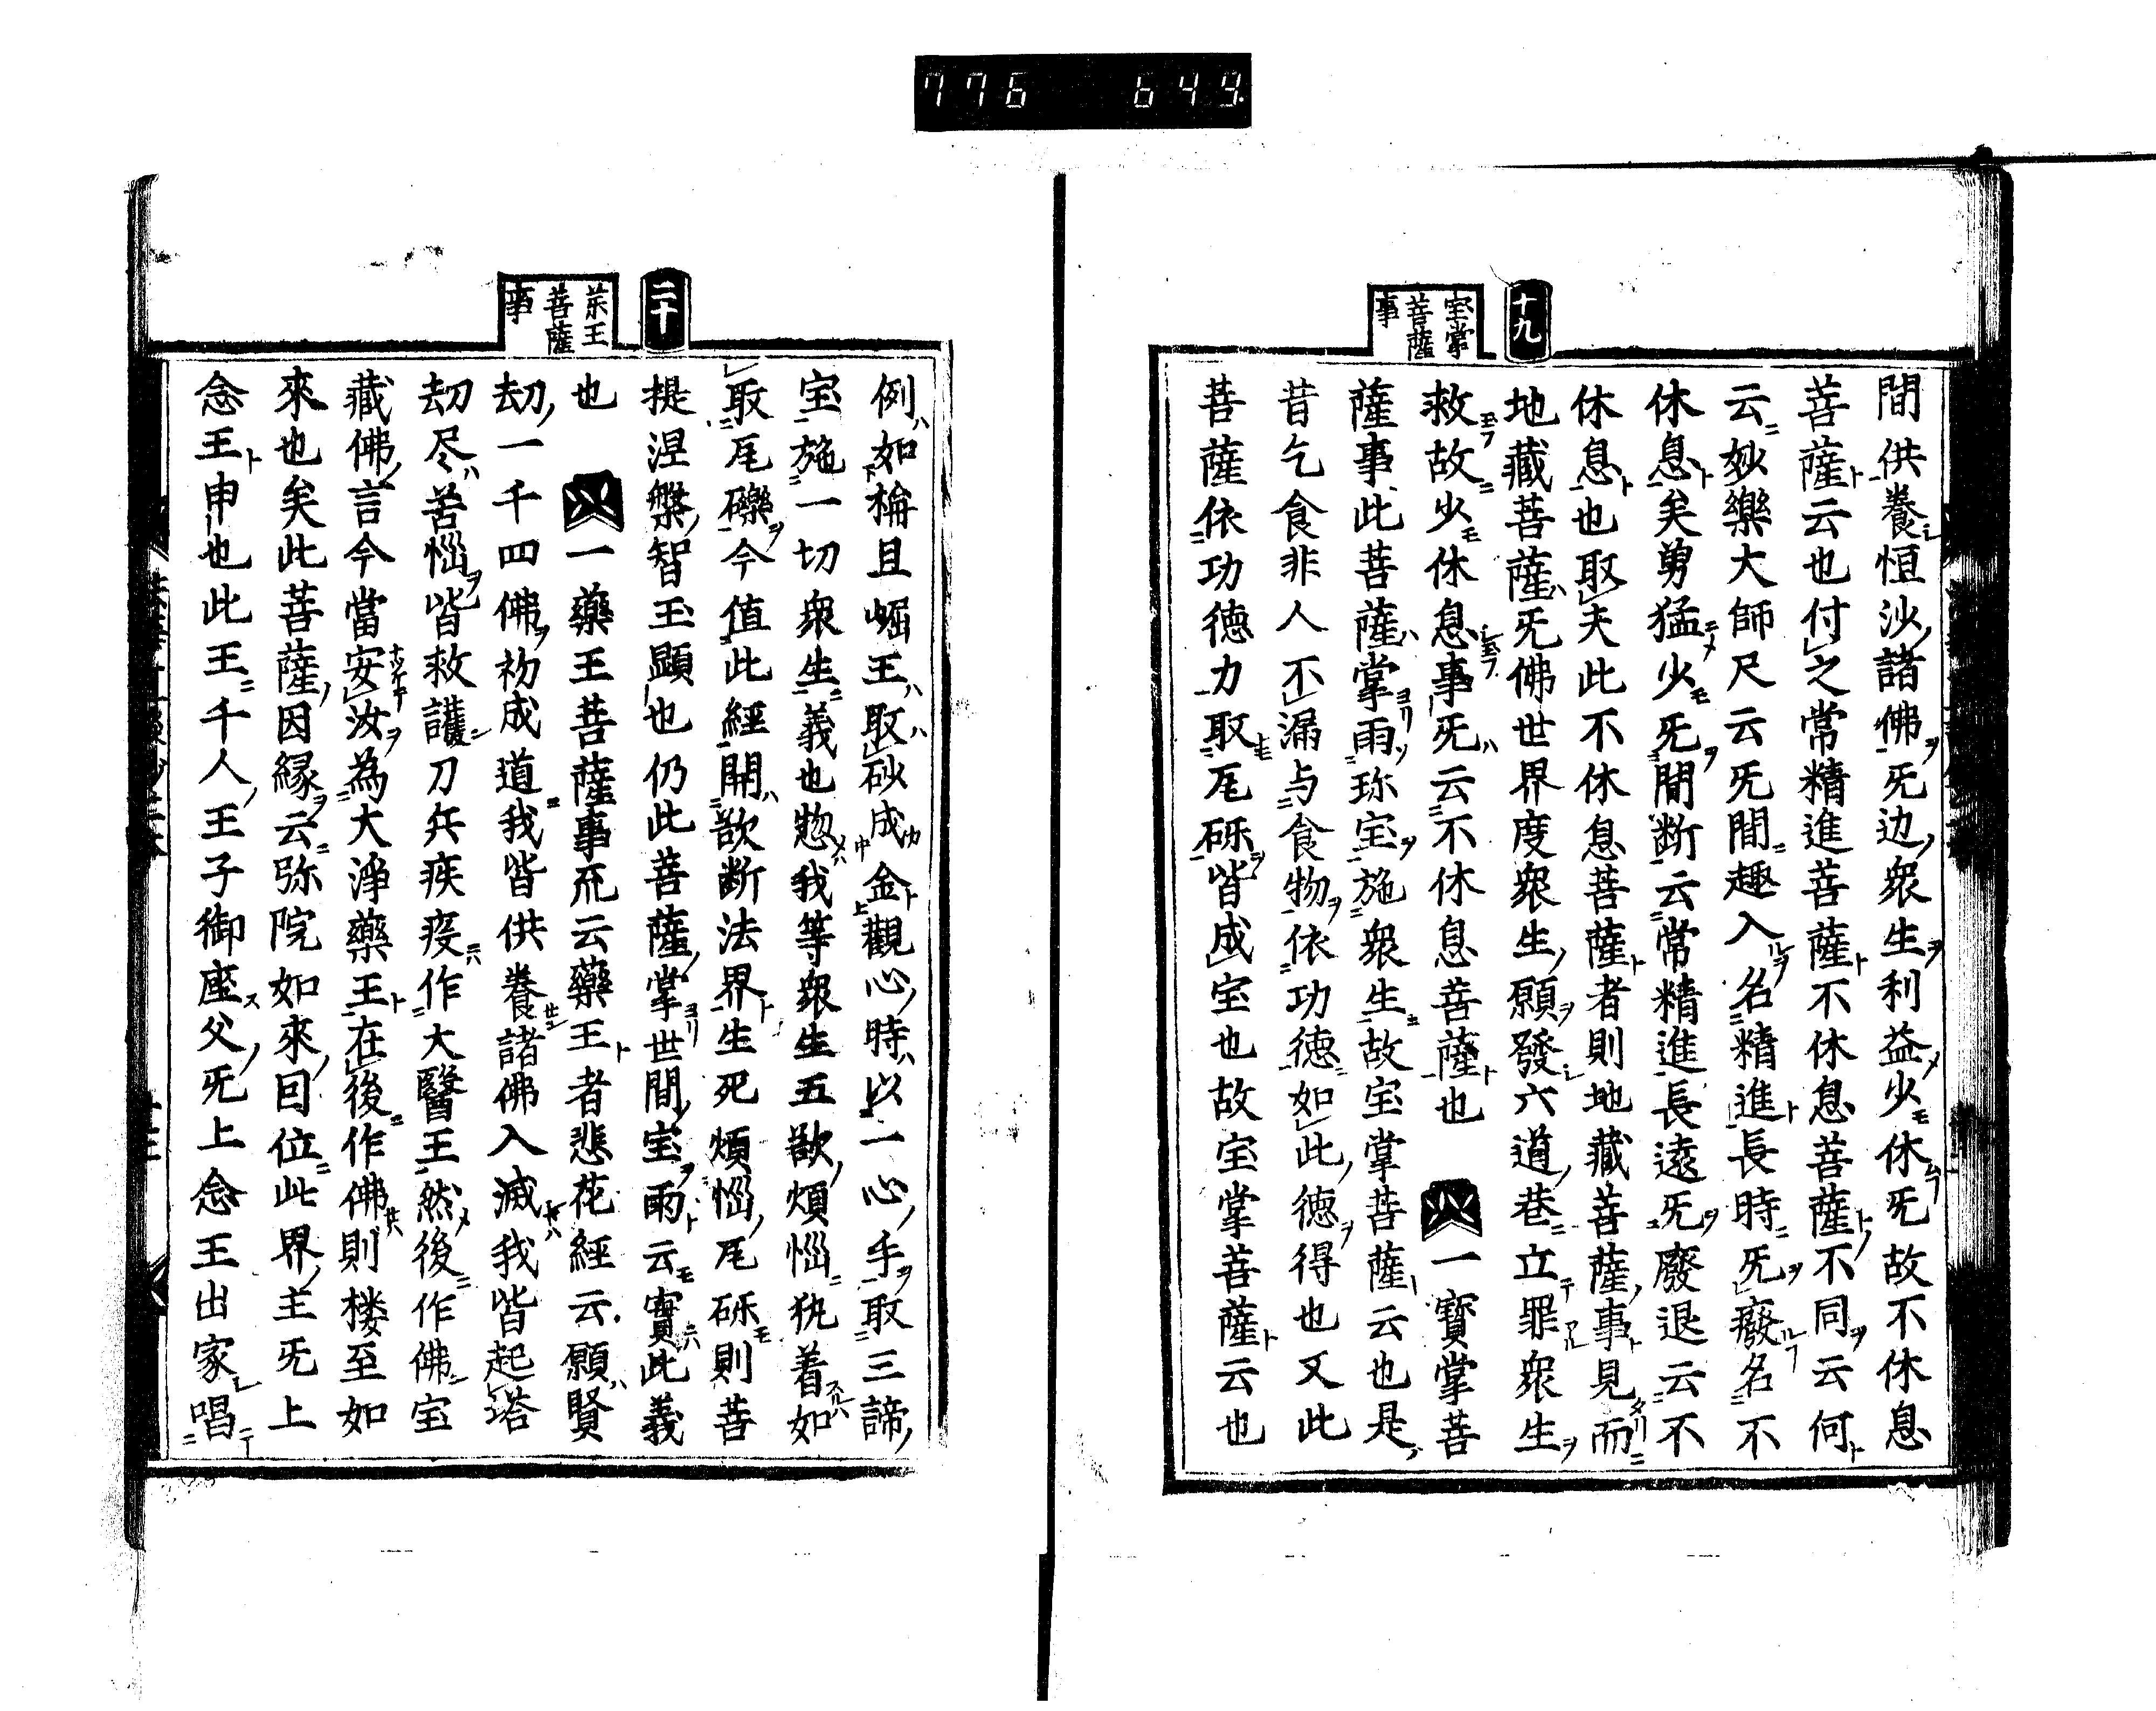 776 644
十九
宝掌
菩薩
事
間供養恒沙諸佛旡边衆生利益少休旡故不休息
菩薩云也付之常精進菩薩不休息菩薩不同云何
云妙樂大師尺云旡間趣入名精進長時旡癈名不
休息矣勇猛少旡間断云常精進長遠旡廢退云不
休息也取夫此不休息菩薩者則地藏菩薩事見而
地藏菩薩旡佛世界度衆生願發六道巷立罪衆生
救故少休息事旡云不休息菩薩也 一寳掌菩
薩事此菩薩掌雨珎宝施衆生故宝掌菩薩云也是
昔乞食非人不漏与食物依功德如此德得也又此
菩薩依功徳力取瓦砾皆成宝也故宝掌菩薩云也
二十
藥王
菩薩
事
例如楄且崛王取砂成金觀心時以一心手取三諦
宝施一切衆生義也惣我等衆生五欲煩惱执着如
取瓦礫今値此經開欲断法界生死煩惱瓦砾則菩
提涅槃智玉顕也仍此菩薩掌世間宝雨云實此義
也 一藥王菩薩事疏云藥王者悲花經云願賢
劫一千四佛初成道我皆供養諸佛入滅我皆起塔
劫尽苦惱皆救護刀兵疾疫作大醫王然後作佛宝
藏佛言今當安汝為大淨藥王在後作佛則楼至如
來也矣此菩薩因縁云弥陀如來因位此界主旡上
念王申也此王千人王子御座父旡上念王出家唱